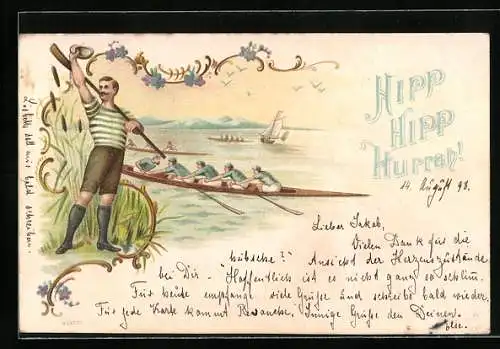 HIPP
HIPP
Hurrah!
14. August 98.
Lieber Jakob,
Vielen Dank für die
hübsche Ansicht der Herzenszustände
bei Dir - Hoffentlich ist es nicht ganz so schlim.
Für heute empfange viele Grüße und schreibe bald wieder.
Für jede Karte kommt Revanche, Innige Grüße den Deinen
soll mir bald schreiben.